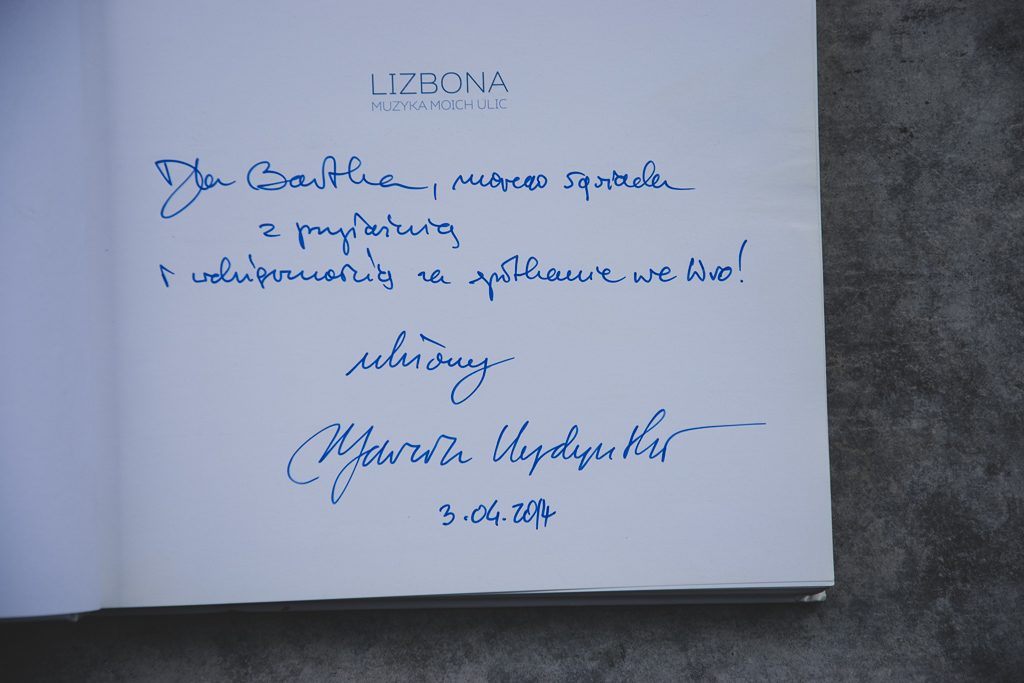 LIZBONA
MUZYKA MOICH ULIC
Dla Bartka, mojego sąsiada
z przyjaźnią
i wdzięcznością za spotkanie we Wro!
Marcin Kydryński
3.04.2014